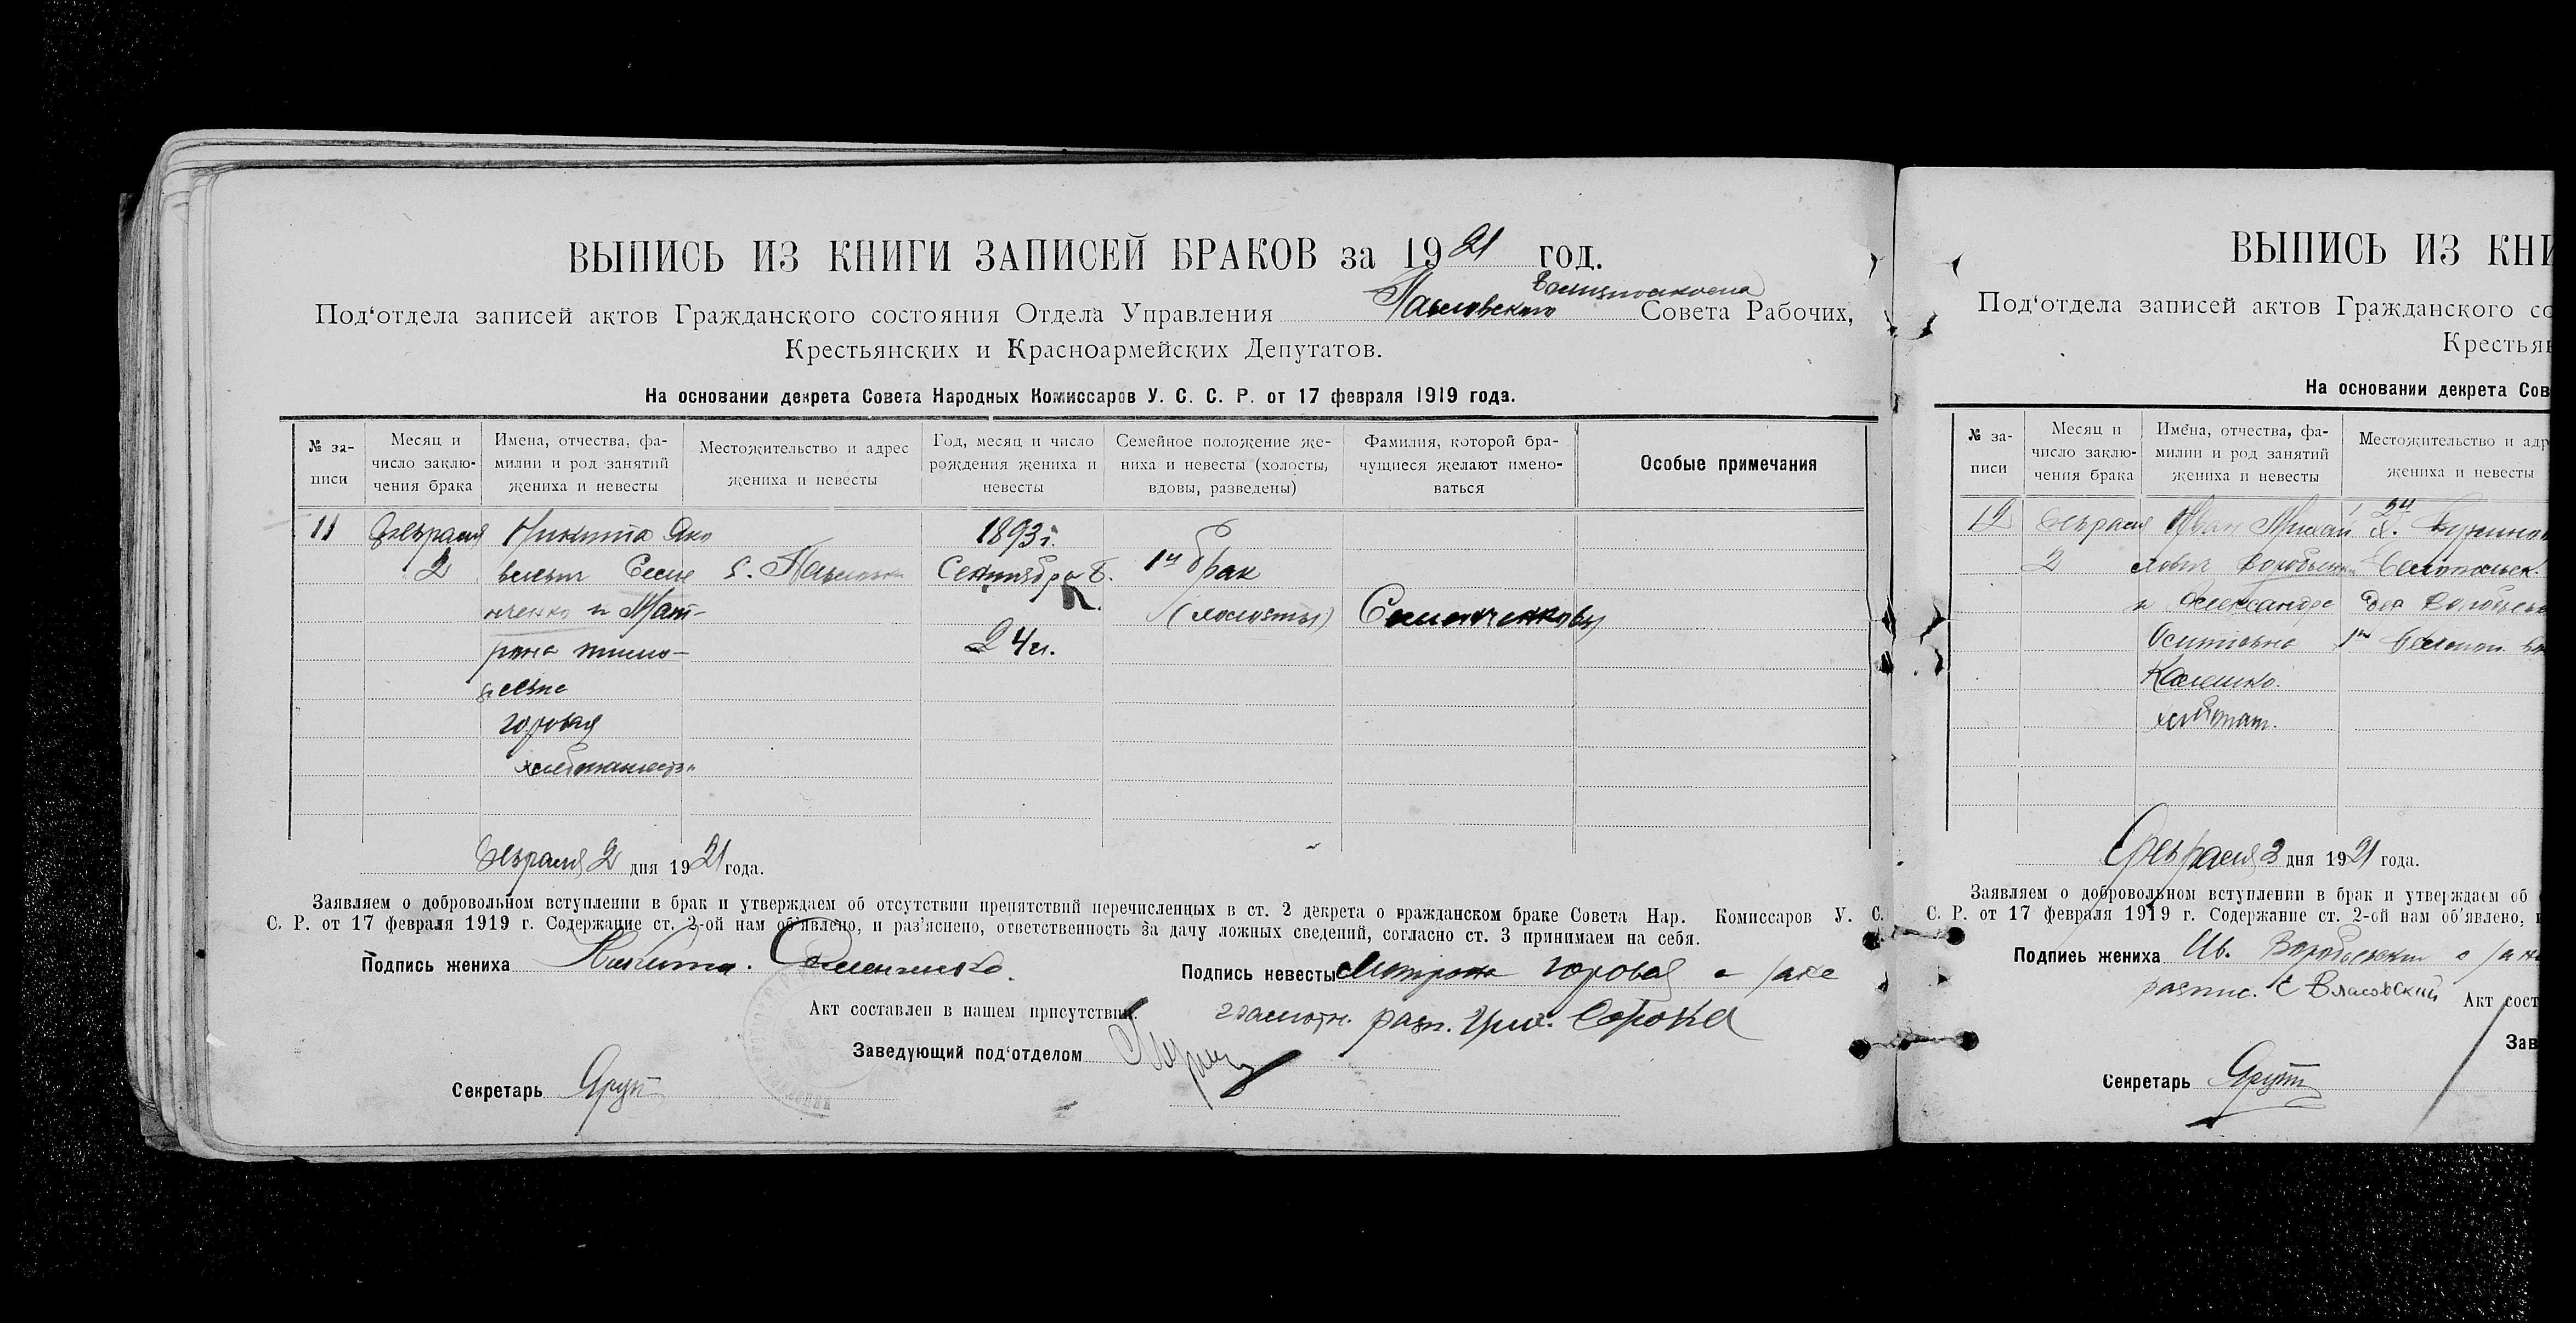 ВЫПИСЬ ИЗ КНИГИ ЗАПИСЕЙ БРАКОВ за 1921 год.
Под‘отдела записей актов Гражданского состояния Отдела Управления Павловского Совета Рабочих,
Крестьянских и Красноармейских Депутатов.
На основании декрета Совета Народных Комиссаров У. С. С. Р. от 17 февраля 1919 года.
№ за-
писи
Месяц и
число заклю-
чения брака
Имена, отчества, фа-
милии и род занятий
жениха и невесты
Местожительство и адрес
жениха и невесты
Год, месяц и число
рождения жениха и
невесты
Семейное положение же-
ниха и невесты (холосты,
вдовы, разведены)
Фамилия, которой бра-
чущиеся желают имено-
ваться
Особые примечания
11
февраля
2
Никита Яко
влевич Семе
нченко и Мат-
рона тимо-
феевна
горовая
с.
1893 г.
Сентября
24 г.
1й брак
(холосты)
Семенченковы
февраля 2 дня 1921 года.
Заявляем о добровольном вступлении в брак и утверждаем об отсутствии препятствий перечисленных в ст. 2 декрета о гражданском браке Совета Нар. Комиссаров У. С.
С. Р. от 17 февраля 1919 г. Содержание ст. 2-ой нам об'явлено, и раз'яснено, ответственность за дачу ложных сведений, согласно ст. 3 принимаем на себя.
Подпись жениха Никита. Семенченко.
Подпись невесты Матрона горовая а за нее
Акт составлен в нашем присутствии.
грамотн. расп. Гри. Сорока
Заведующий под‘отделом
Секретарь Ярут
ВЫПИСЬ ИЗ КНИ
Под‘отдела записей актов Гражданского со
Крестьян
На основании декрета Сов
№ за-
писи
Месяц и
число заклю-
чения брака
Имена, отчества, фа-
милии и род занятий
жениха и невесты
Местожительство и адр
жениха и невесты
12
февраля
2
Иван Михай
лович
и Александра
Осиповна
хлебопаш.
февраля 2 дня 1921 года.
Заявляем о добровольном вступлении в брак и утверждаем об
С. Р. от 17 февраля 1919 г. Содержание ст. 2-ой нам об'явлено, и
Подпись жениха Ив.
распис. С Власовский
Акт сост
Зав
Секретарь Ярут